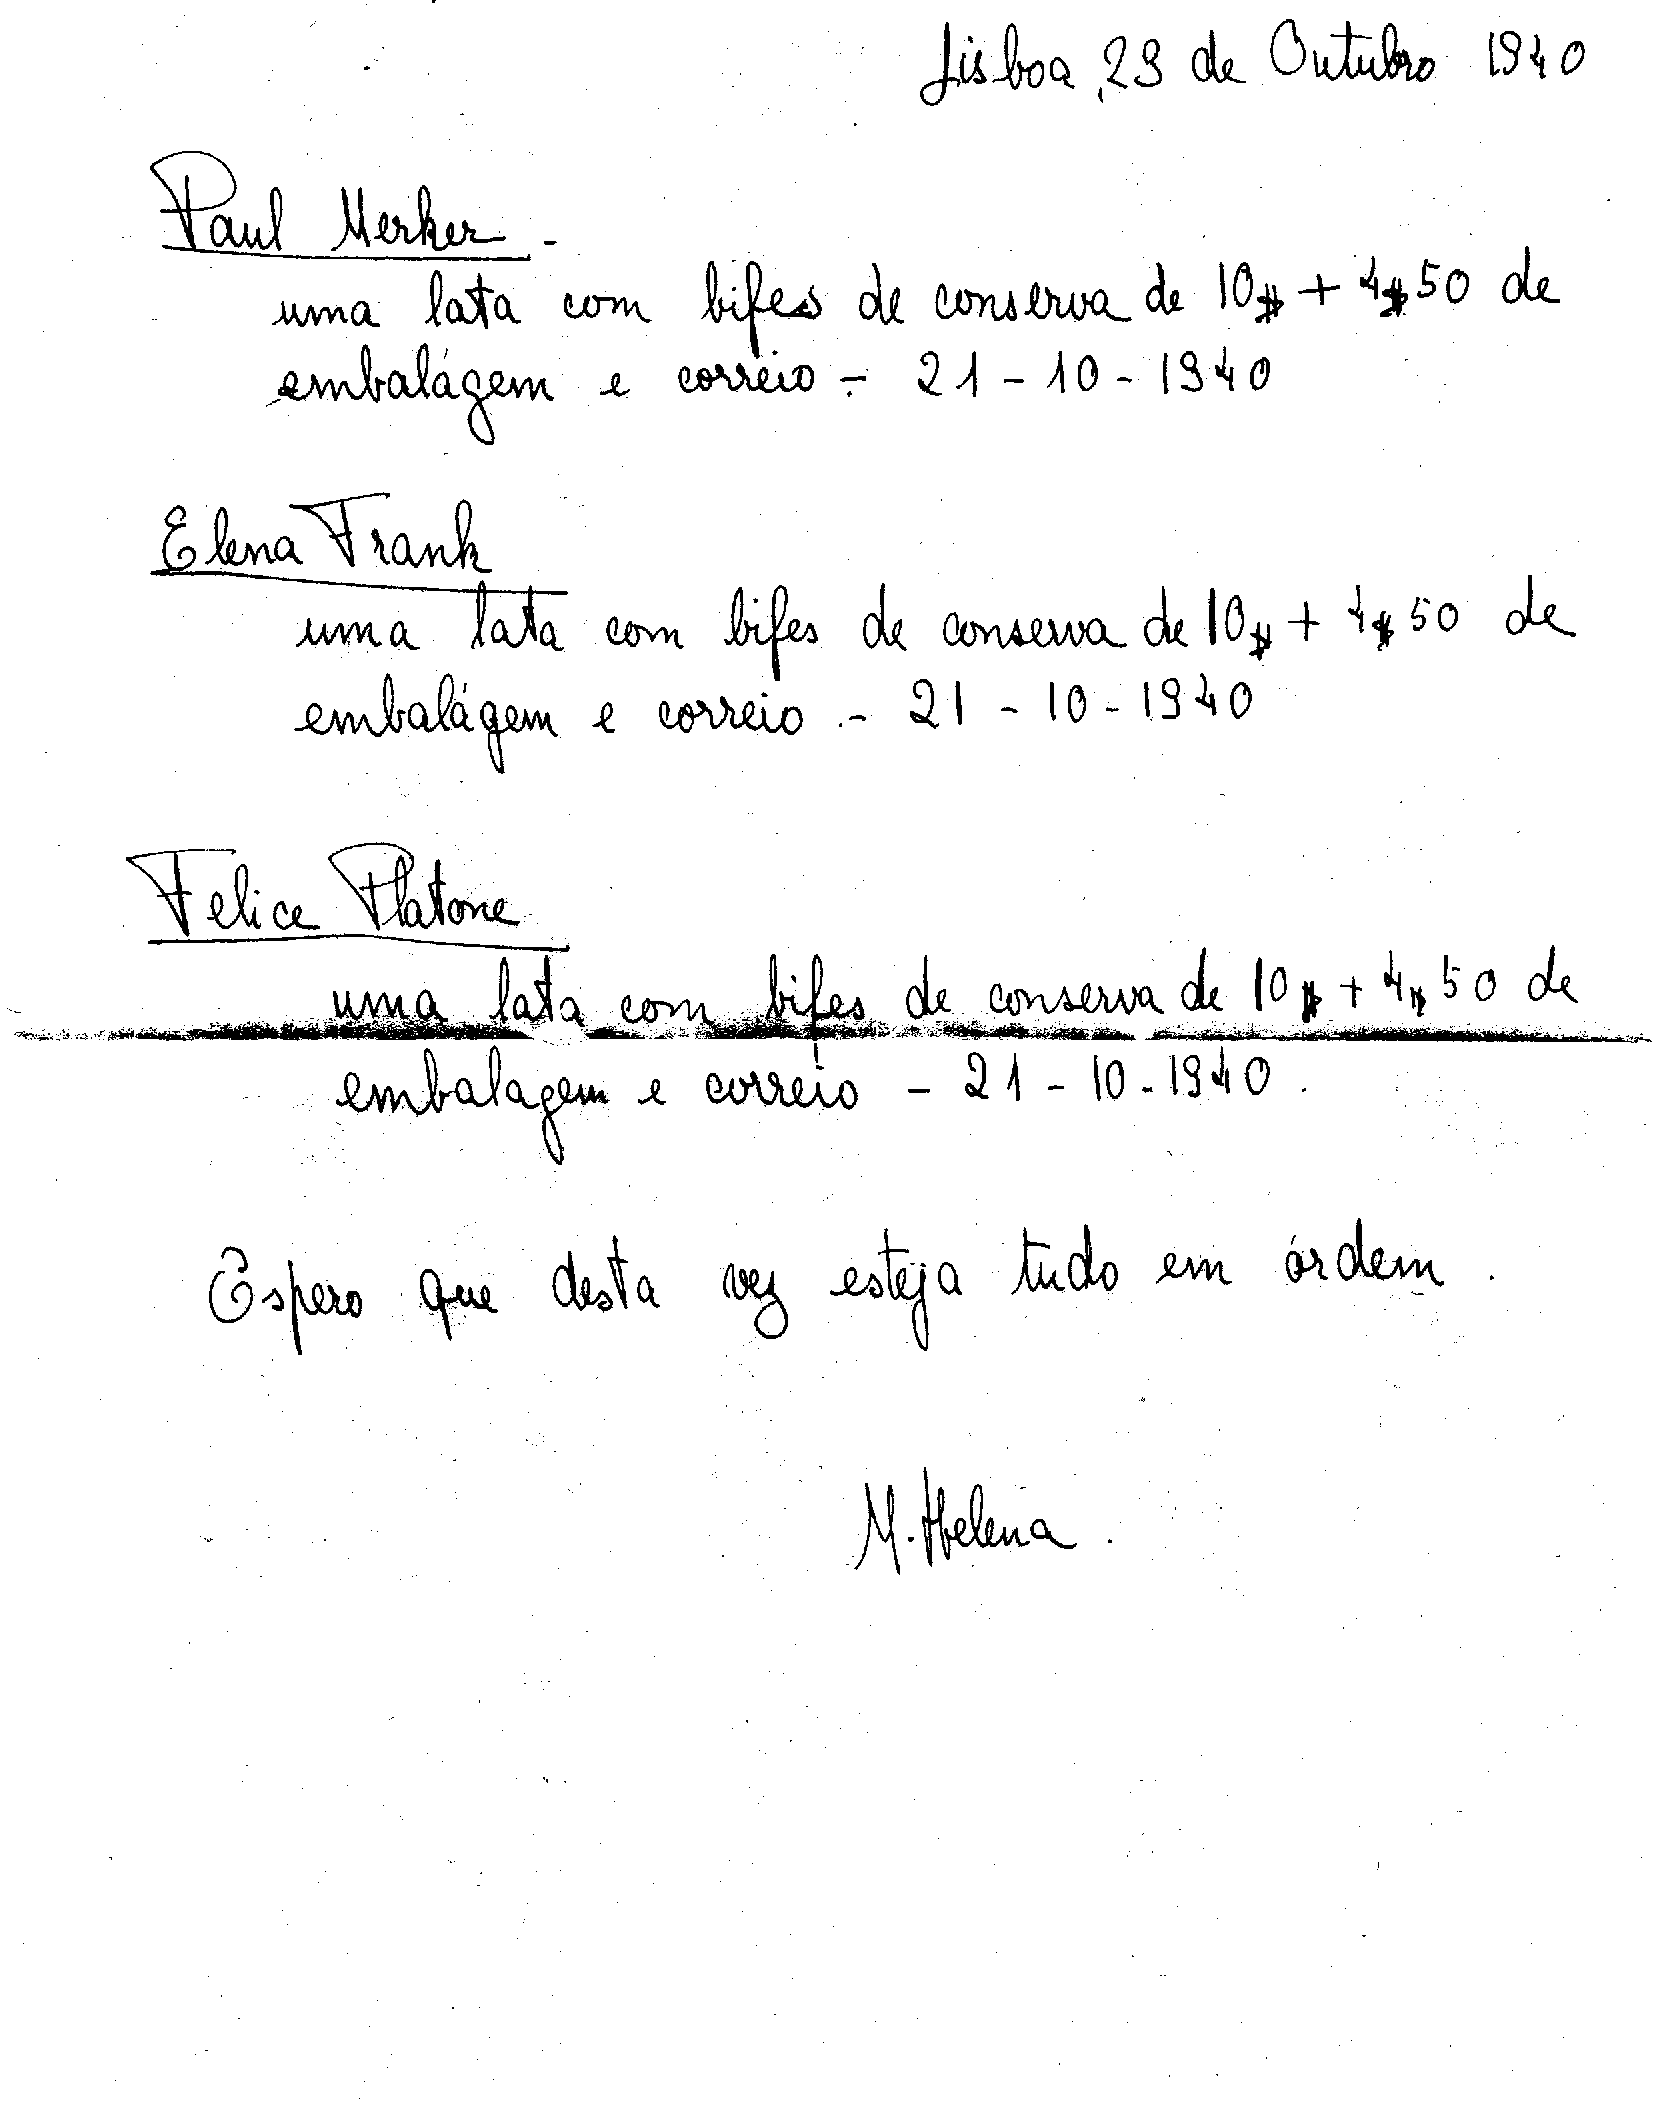 Lisboa, 29 de Outubro 1940
Paul Merker -
uma lata com bifes de conserva de 10$ + 4$50 de
embalágem e correio - 21-10-1940
Elena Frank
uma lata com bifes de conserva de 10$ + 4$50 de
embalágem e correio .- 21-10-1940
Felice Platone
uma lata com bifes de conserva de 10$ + 4$50 de
embalagem e correio - 21-10-1940.
Espero que desta vez esteja tudo em órdem.
M. Helena.